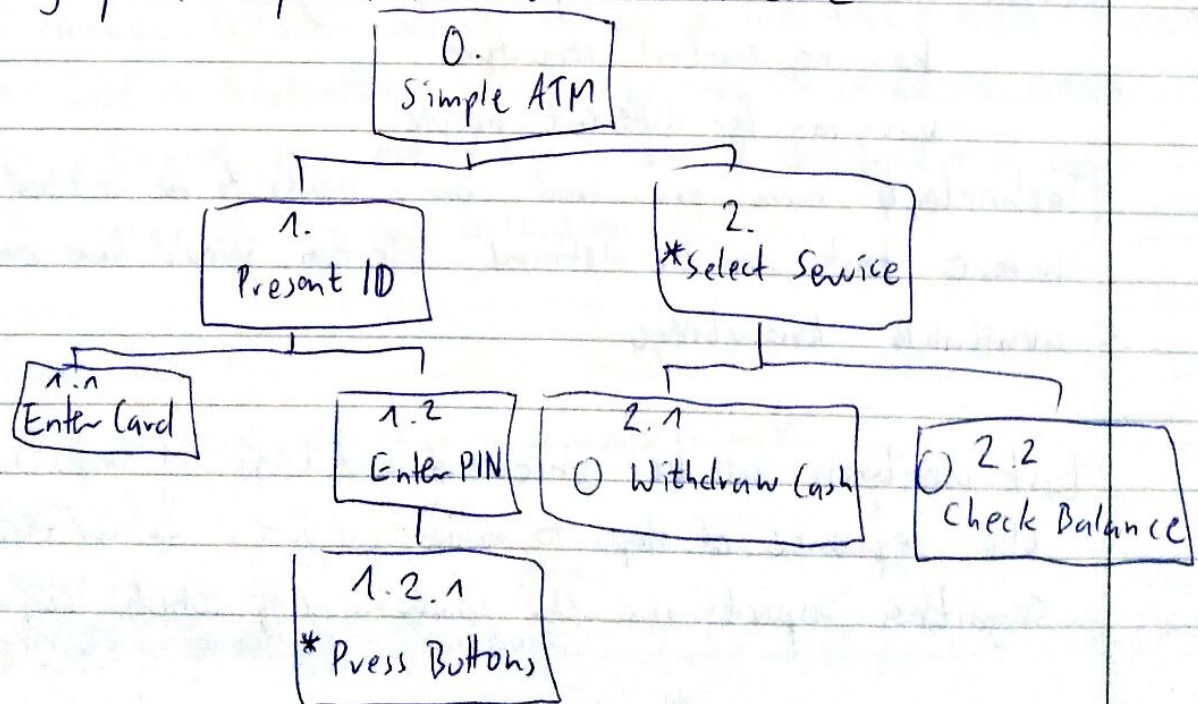 0.
Simple ATM
1.
Present ID
2.
*Select Service
1.1
Enter Card
1.2
Enter PIN
2.1
O Withdraw Cash
O 2.2
Check Balance
1.2.1
* Press Buttons